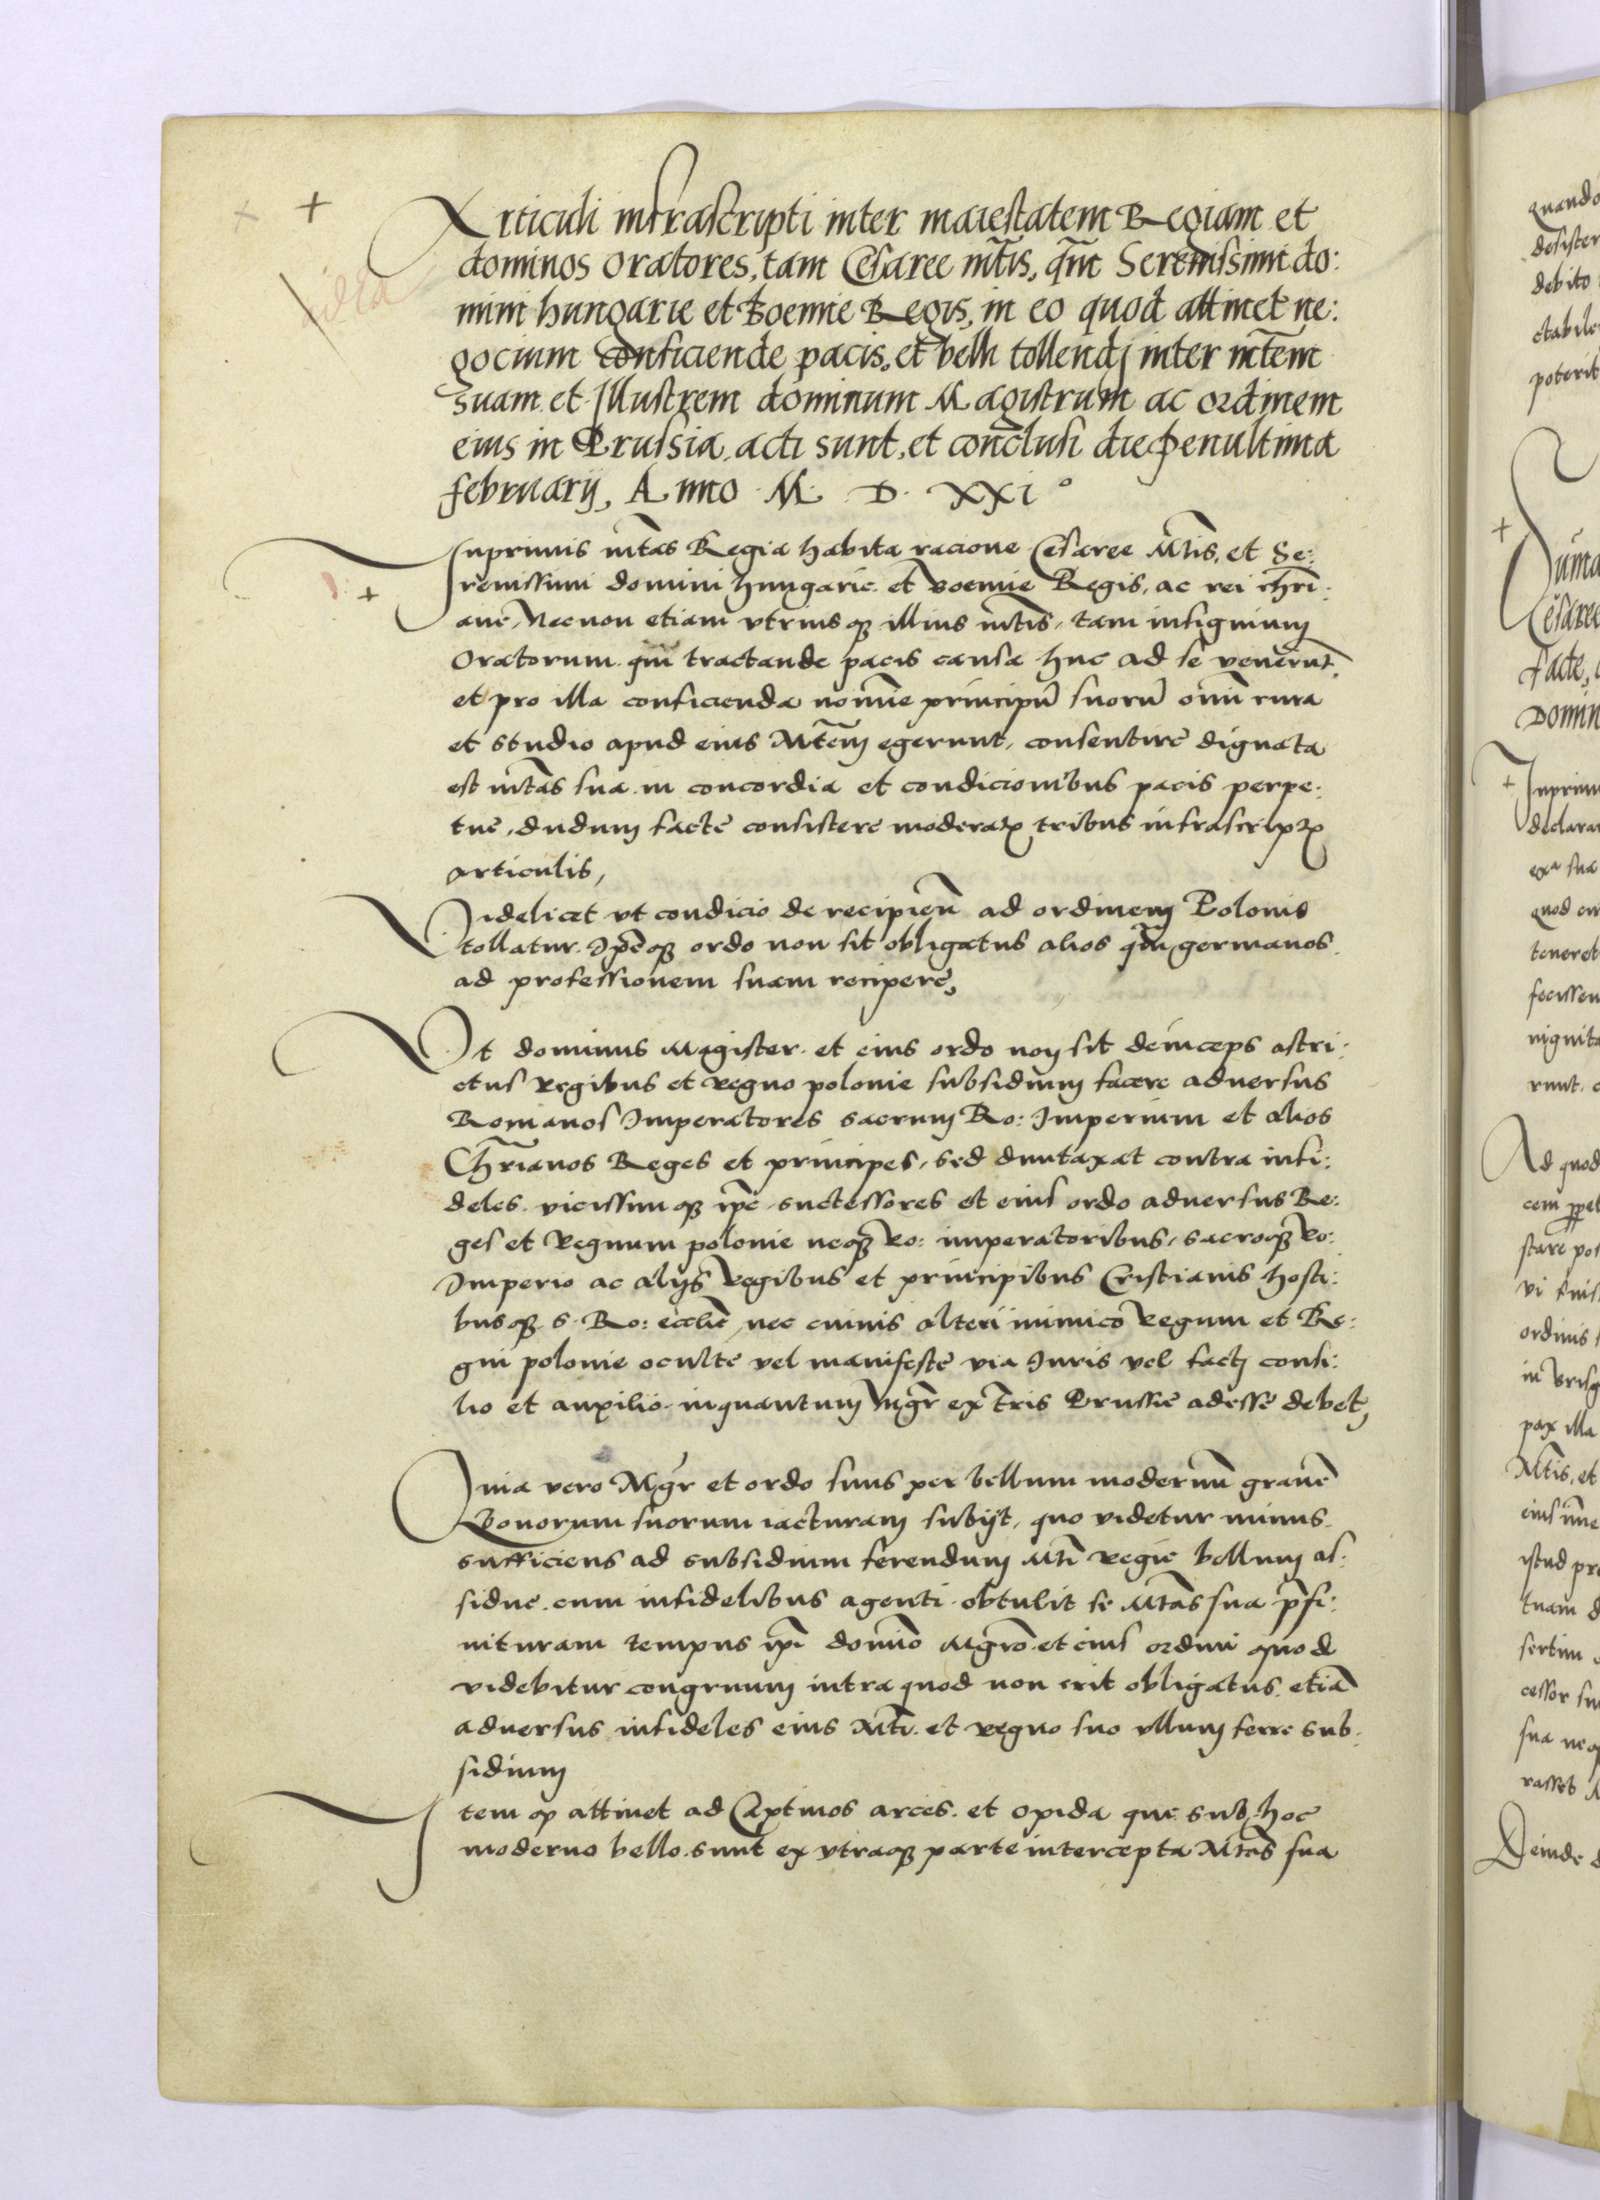 Articuli infrascripti inter maiestatem Regiam et
dominos oratores, tam Cesaree mtis, qm Serenissimi do:
mini hungarie et Boemie Regis, in eo quod attinet ne:
gocium conficiende pacis, et belli tollendj inter mtem
suam et Illustrem dominum Magistrum ac ordinem
eius in Prussia, acti sunt, et conclusi die penultima
february, Anno M. D. XXI°
Inprimis mtas Regia habita racione Cesaree Mtis, et Se:
renissimi domini hungarie et boemie Regis, ac rei chri:
ane, Necnon etiam vtrius q3 illius mtis, tam insignium
Oratorum qui tractande pacis causa huc ad se venerunt,
et pro illa conficienda nomine principu suoru omi cura
et studio apud eius Mtem egerunt, consentire dignata
est mtas sua in concordia et condicionibus pacis perpe:
tue, dudum facte consistere moderatis tribus infrascriptis
articulis,
Videlicet vt condicio de recipien ad ordinem Polonis
tollatur. Ipeq3 ordo non sit obligatus alios qm germanos
ad professionem suam recipere,
Vt dominus Magister et eius ordo non sit deinceps astri:
ctus regibus et regno polonie subsidium facere aduersus
Romanos Imperatores sacrum Ro: Imperium et alios
Chrianos Reges et principes, sed duntaxat contra infi:
deles. vicissim q3 ipe successores et eius ordo aduersus Re:
ges et Regnum polonie neq3 Ro: imperatoribus, sacroq3 Ro:
Imperio ac alijs regibus et principibus Cristianis hosti:
bus q3 S. Ro: ecclie, nec cuiuis alteri inimico Regum et Re:
gni polonie oculte vel manifeste via Iuris vel factj consi:
lio et auxilio inquantum Mgr ex tris Prussie adesse debet,
Quia vero Mgr et ordo suus per bellum modernu graue
bonorum suorum iacturam subijt, quo videtur minus
sufficiens ad subsidium ferendum Mti regie bellum as:
sidue cum infidelibus agenti obtulit se Mtas sua prefi:
nituram tempus ipi domino Mgro et eius ordini quod
videbitur congruum intra quod non erit obligatus etia
aduersus infideles eius Mti et regno suo vllum ferre sub
sidium
Item q attinet ad Captiuos arces et opida que sub hoc
moderno bello sunt ex vtraq3 parte intercepta Mtas sua